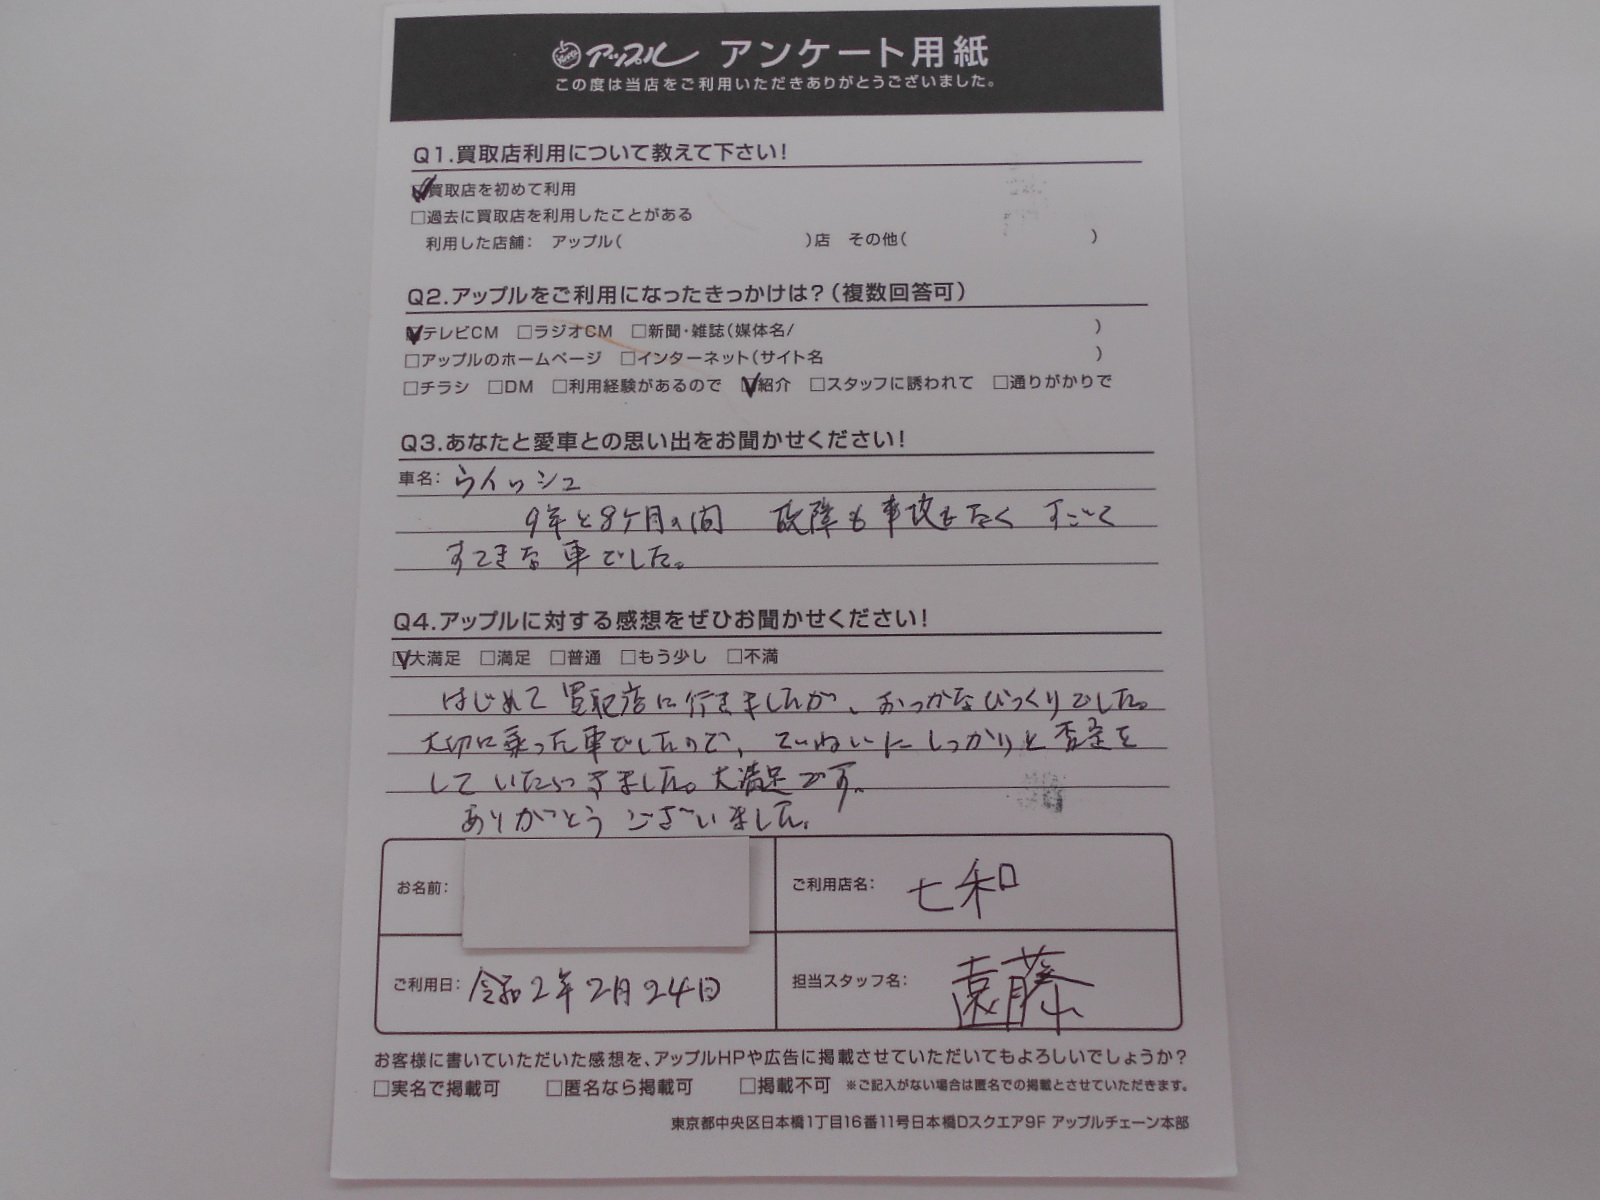 アップル アンケート用紙
この度は当店をご利用いただきありがとうございました。
Q1.買取店利用について教えて下さい!
☑買取店を初めて利用
□過去に買取店を利用したことがある
利用した店舗: アップル( )店 その他( )
Q2.アップルをご利用になったきっかけは?(複数回答可)
☑テレビCM □ラジオCM □新聞・雑誌(媒体名/ )
□アップルのホームページ □インターネット(サイト名 )
□チラシ □DM □利用経験があるので ☑紹介 □スタッフに誘われて □通りがかりで
Q3.あなたと愛車との思い出をお聞かせください!
車名: ウイッシュ
9年と8ケ月の間 故障も事故もなく すごく
すてきな車でした。
Q4.アップルに対する感想をぜひお聞かせください!
☑大満足 □満足 □普通 □もう少し □不満
はじめて買取店に行きましたが、おっかなびっくりでした。
大切に乗った車でしたので、ていねいにしっかりと査定を
していただきました。大満足です。
ありがとうございました。
お名前:
ご利用店名: 七和
ご利用日: 令和2年2月24日
担当スタッフ名: 遠藤
お客様に書いていただいた感想を、アップルHPや広告に掲載させていただいてもよろしいでしょうか?
□実名で掲載可 □匿名なら掲載可 □掲載不可 ※ご記入がない場合は匿名での掲載とさせていただきます。
東京都中央区日本橋1丁目16番11号日本橋Dスクエア9F アップルチェーン本部